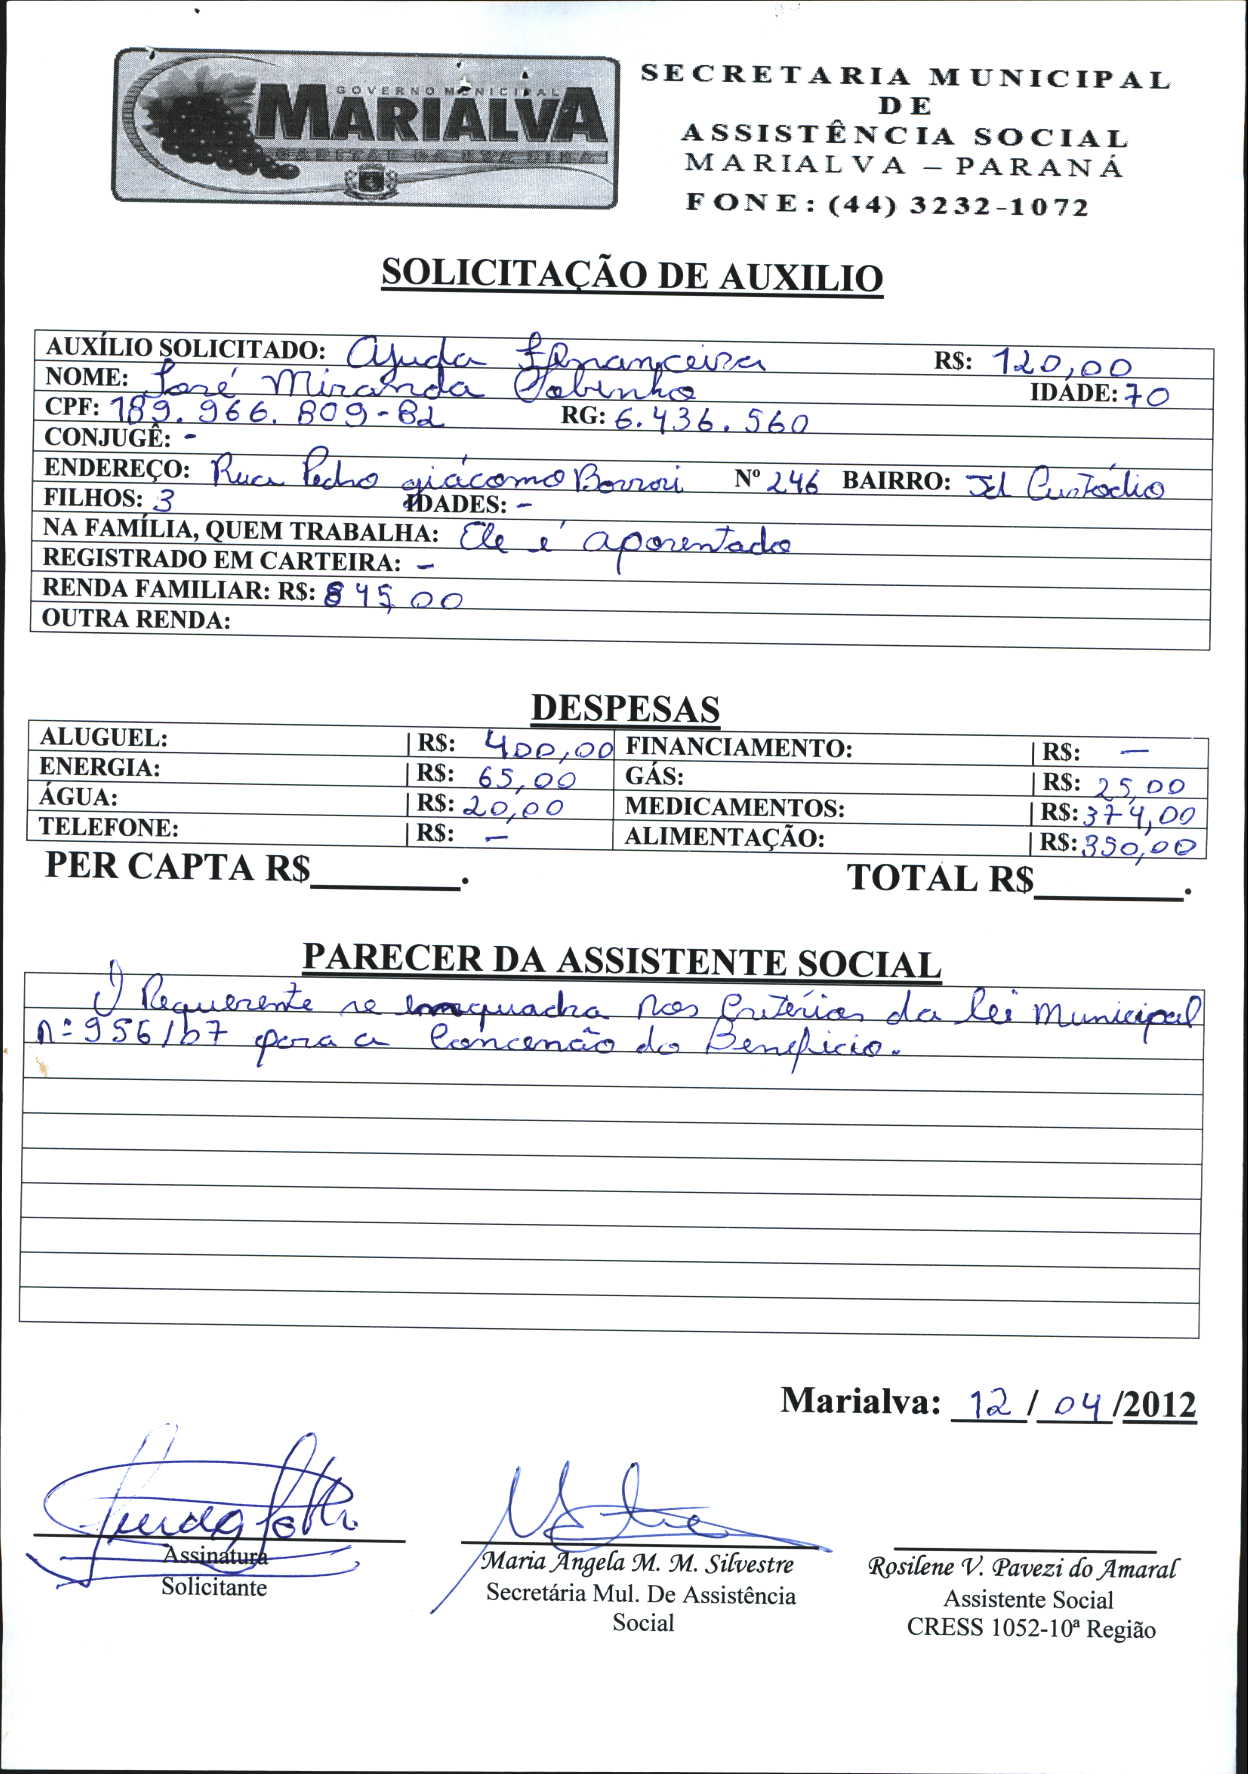 GOVERNO MUNICIPAL
MARIALVA
CAPITAL DA UVA FINA
SECRETARIA MUNICIPAL
DE
ASSISTÊNCIA SOCIAL
MARIALVA – PARANÁ
FONE: (44) 3232-1072
SOLICITAÇÃO DE AUXILIO
AUXÍLIO SOLICITADO: Ajuda Financeira R$: 120,00
NOME: José Miranda Sobinho IDADE: 70
CPF: 189.966.809-82 RG: 6.436.560
CONJUGÊ: -
ENDEREÇO: Rua Pedro giácomo Nº 246 BAIRRO: Jd Custódio
FILHOS: 3 IDADES: -
NA FAMÍLIA, QUEM TRABALHA: Ele é aposentado
REGISTRADO EM CARTEIRA: -
RENDA FAMILIAR: R$: 845,00
OUTRA RENDA:
DESPESAS
ALUGUEL: R$: 400,00 FINANCIAMENTO: R$: -
ENERGIA: R$: 65,00 GÁS: R$: 25,00
ÁGUA: R$: 20,00 MEDICAMENTOS: R$: 374,00
TELEFONE: R$: - ALIMENTAÇÃO: R$: 350,00
PER CAPTA R$________. TOTAL R$________.
PARECER DA ASSISTENTE SOCIAL
O Requerente se enquadra nos Critérios da lei Municipal
nº 956/07 para a Concessão do Beneficio.
Marialva: 12 / 04 /2012
Assinatura
Solicitante
Maria Angela M. M. Silvestre
Secretária Mul. De Assistência
Social
Rosilene V. Pavezi do Amaral
Assistente Social
CRESS 1052-10ª Região